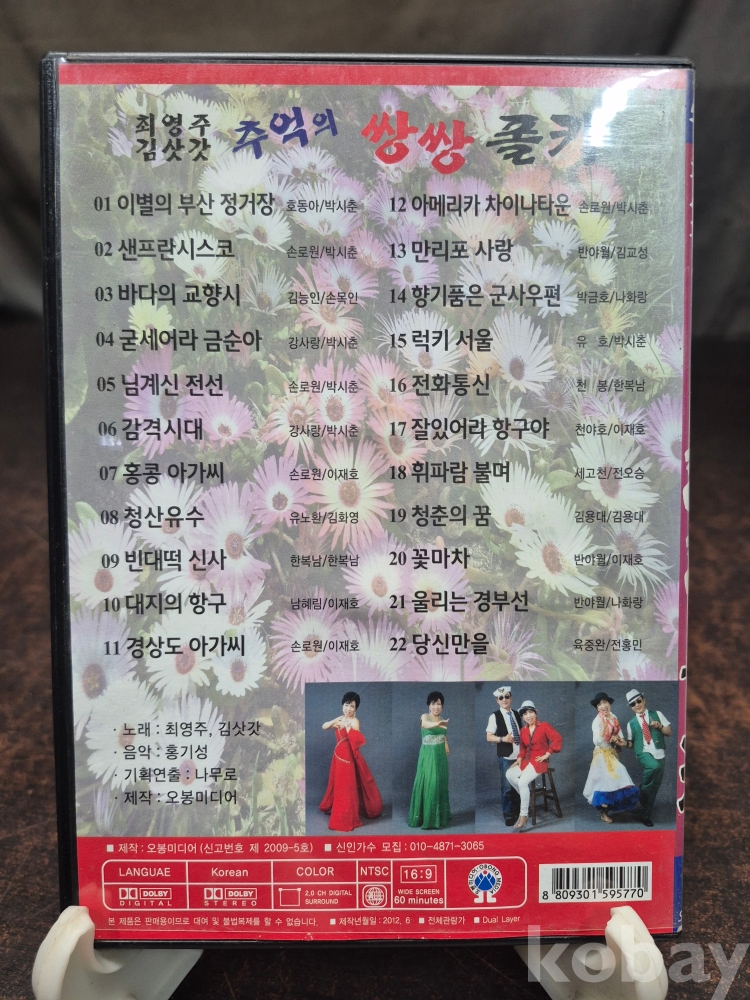 최영주
김삿갓
추억의 쌍쌍 폴카
01 이별의 부산 정거장 호동아/박시춘
02 샌프란시스코 손로원/박시춘
03 바다의 교향시 김능인/손목인
04 굳세어라 금순아 강사랑/박시춘
05 님계신 전선 손로원/박시춘
06 감격시대 강사랑/박시춘
07 홍콩 아가씨 손로원/이재호
08 청산유수 유노환/김화영
09 빈대떡 신사 한복남/한복남
10 대지의 항구 남혜림/이재호
11 경상도 아가씨 손로원/이재호
12 아메리카 차이나타운 손로원/박시춘
13 만리포 사랑 반야월/김교성
14 향기품은 군사우편 박금호/나화랑
15 럭키 서울 유 호/박시춘
16 전화통신 천 봉/한복남
17 잘있어라 항구야 천야호/이재호
18 휘파람 불며 세고천/전오승
19 청춘의 꿈 김용대/김용대
20 꽃마차 반야월/이재호
21 울리는 경부선 반야월/나화랑
22 당신만을 육중완/전홍민
· 노래 : 최영주, 김삿갓
· 음악 : 홍기성
· 기획연출 : 나무로
· 제작 : 오봉미디어
■ 제작 : 오봉미디어 (신고번호 제 2009-5호) ■ 신인가수 모집 : 010-4871-3065
LANGUAE Korean COLOR NTSC 16:9
DOLBY DIGITAL
DOLBY STEREO
2.0 CH DIGITAL SURROUND
WIDE SCREEN
60 minutes
8 809301 595770
본 제품은 판매용이므로 대여 및 불법복제를 할 수 없습니다. ■ 제작년월일 : 2012. 6 ■ 전체관람가 ■ Dual Layer
kobay